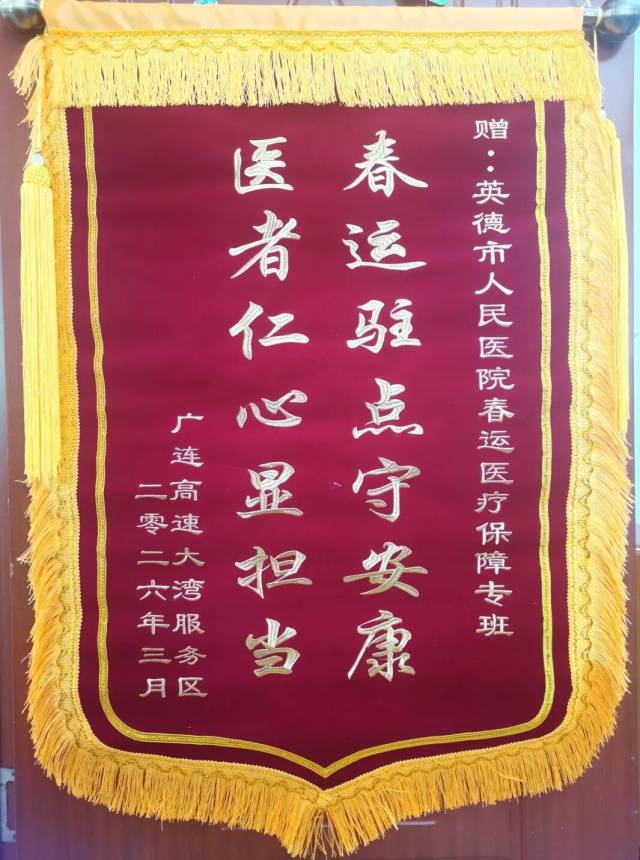 赠：英德市人民医院春运医疗保障专班
春运驻点守安康
医者仁心显担当
广连高速大湾服务区
二零二六年三月